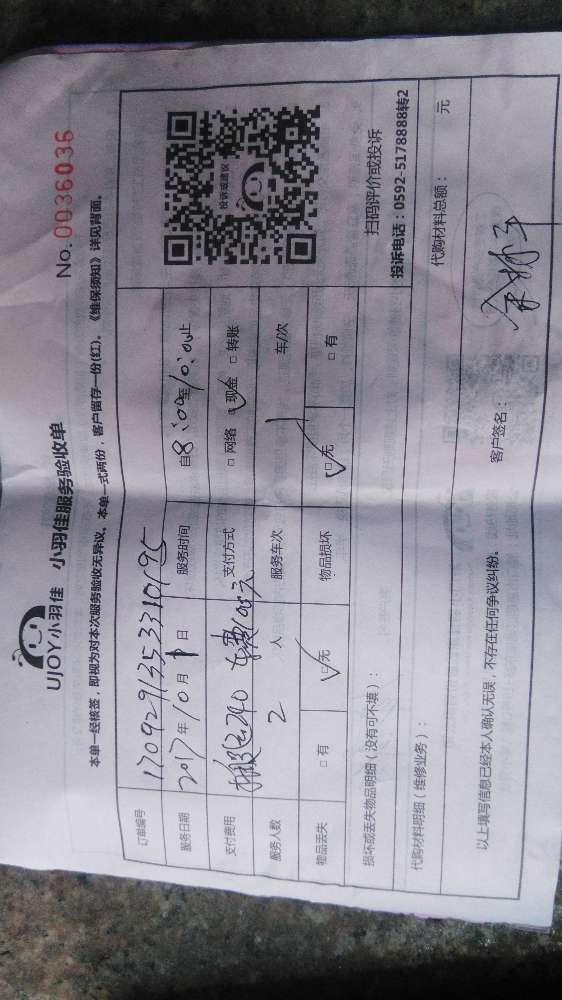 UJOY小羽佳 小羽佳服务验收单
No. 0036036
本单一经核签，即视为对本次服务验收无异议。本单一式两份，客户留存一份(红)。《维保须知》详见背面。
订单编号 1709291353310195
服务日期 2017年10月1日 服务时间 自8:00至10:00止
支付费用 240 车费100元 支付方式 □网络 ☑现金 □转账
服务人数 2人 服务车次 1 车/次
物品丢失 □有 ☑无 物品损坏 ☑无 □有
投诉或建议
扫码评价或投诉
投诉电话：0592-5178888转2
损坏或丢失物品明细（没有可不填）：
代购材料明细（维修业务）： 代购材料总额： 元
以上填写信息已经本人确认无误，不存在任何争议纠纷。 客户签名：